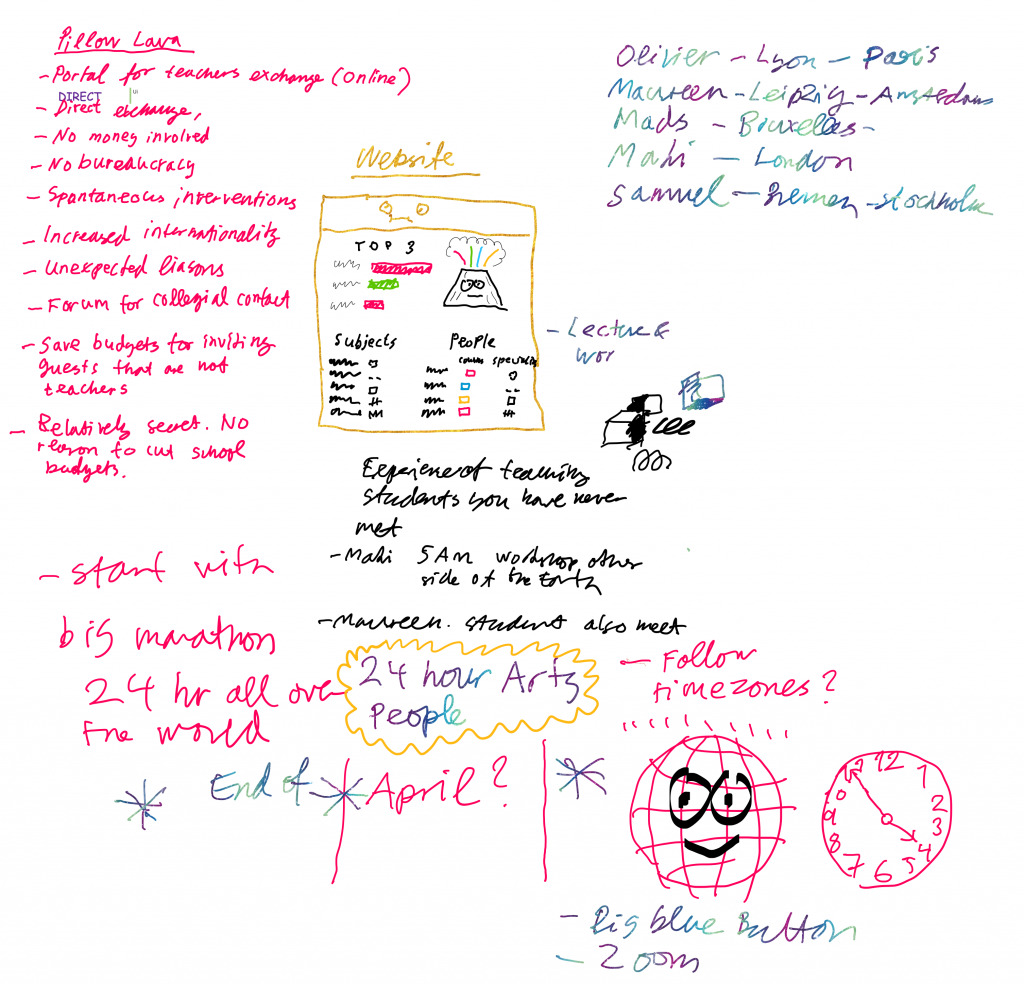 Pillow Lava
- Portal for teachers exchange (online)
DIRECT
- Direct exchange,
- No money involved
- No bureaucracy
- Spontaneous interventions
- Increased internationality
- Unexpected liasons
- Forum for collegial contact
- Save budgets for inviding
guests that are not
teachers
- Relatively secret. No
reason to cut school
budgets.
Olivier - Lyon - Paris
Maureen - Leipzig - Amsterdam
Mads - Bruxelles -
Mahi - London
Samuel - Bremen - Stockholm
Website
TOP 3
Subjects People
speciality
- Lecture &
wor
Experience of teaching
students you have never
met
- Mahi 5 AM workshop other
side of the Earth
- Maureen. student also meet
- start with
big marathon
24 hr all over
the world
24 hour Arts
People
- Follow
timezones?
End of April?
12
1
2
3
4
5
6
7
8
9
- Big blue Button
- Zoom